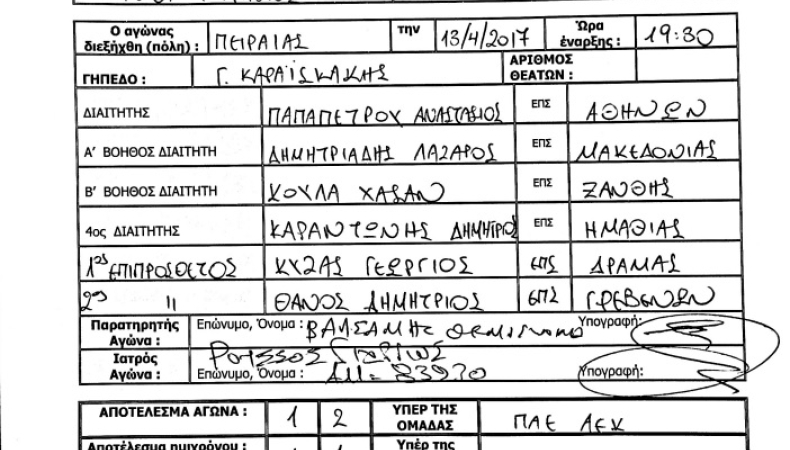 Ο αγώνας διεξήχθη (πόλη) : ΠΕΙΡΑΙΑΣ την 13/4/2017 Ώρα έναρξης : 19:30
ΓΗΠΕΔΟ : Γ. ΚΑΡΑΪΣΚΑΚΗΣ ΑΡΙΘΜΟΣ ΘΕΑΤΩΝ :
ΔΙΑΙΤΗΤΗΣ ΠΑΠΑΠΕΤΡΟΥ ΑΝΑΣΤΑΣΙΟΣ ΕΠΣ ΑΘΗΝΩΝ
Α' ΒΟΗΘΟΣ ΔΙΑΙΤΗΤΗ ΔΗΜΗΤΡΙΑΔΗΣ ΛΑΖΑΡΟΣ ΕΠΣ ΜΑΚΕΔΟΝΙΑΣ
Β' ΒΟΗΘΟΣ ΔΙΑΙΤΗΤΗ ΚΟΥΛΑ ΧΑΣΑΝ ΕΠΣ ΞΑΝΘΗΣ
4ος ΔΙΑΙΤΗΤΗΣ ΚΑΡΑΝΤΩΝΗΣ ΔΗΜΗΤΡΙΟΣ ΕΠΣ ΗΜΑΘΙΑΣ
1ος ΕΠΙΠΡΟΣΘΕΤΟΣ ΚΥΖΑΣ ΓΕΩΡΓΙΟΣ ΕΠΣ ΔΡΑΜΑΣ
2ος " ΘΑΝΟΣ ΔΗΜΗΤΡΙΟΣ ΕΠΣ ΓΡΕΒΕΝΩΝ
Παρατηρητής Αγώνα : Επώνυμο, Όνομα : ΒΑΛΣΑΜΗΣ Υπογραφή:
Ιατρός Αγώνα : Επώνυμο, Όνομα : Υπογραφή:
ΑΠΟΤΕΛΕΣΜΑ ΑΓΩΝΑ : 1 2 ΥΠΕΡ ΤΗΣ ΟΜΑΔΑΣ ΠΑΕ ΑΕΚ
Αποτέλεσμα ημιχρόνου : Υπέρ της